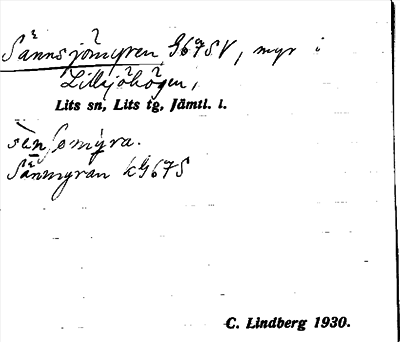 Sännsjömyren G67SV, myr i
Lillsjöhögen,
Lits sn, Lits tg, Jämtl. l.
sän ſømýra.
Sännmyran kG67S
C. Lindberg 1930.